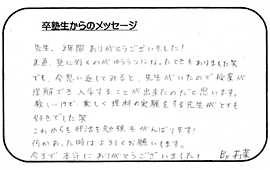 卒塾生からのメッセージ
先生、3年間ありがとうございました！
正直、塾に行くのがゆううつになったときもありました笑
でも、今思い返してみると、先生がいたので授業が
理解でき入学することが出来たのだと思います。
厳しいけど、楽しく理科の実験をする先生がとても
好きでした笑
これからも部活も勉強もがんばります！
何かあった時はよろしくお願いします！
今まで本当にありがとうございました！ By 莉菜